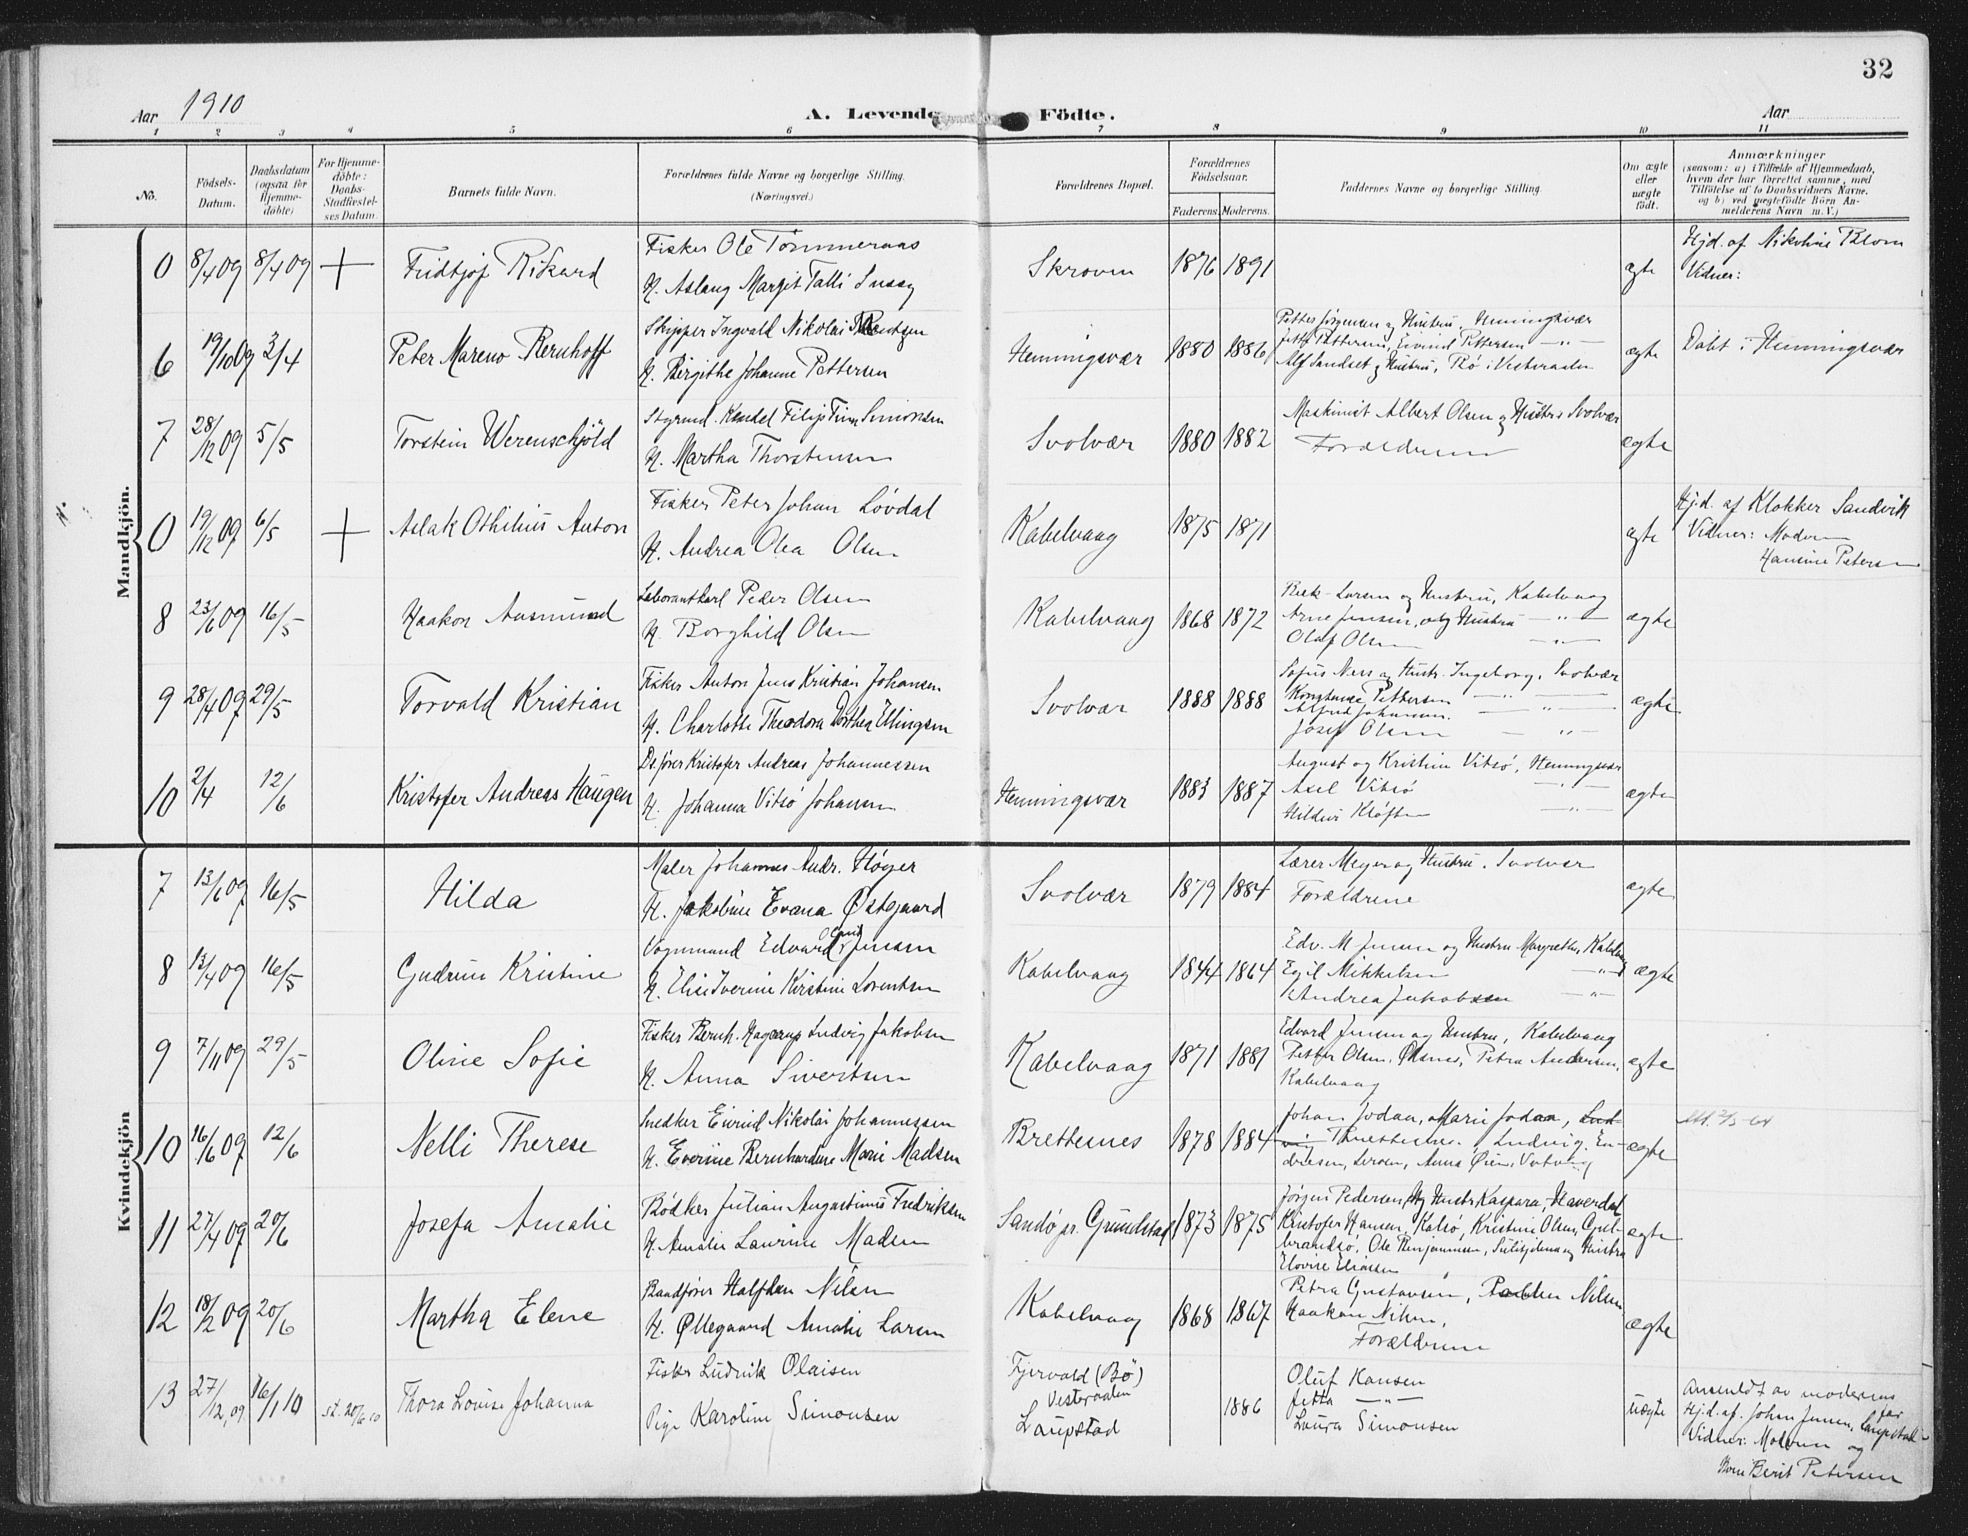 32
Aar 1910
A. Levende Födte.
Aar
1 2 3 4 5 6 7 8 9 10 11
No.
Födsels-Datum.
Daabsdatum (ogsaa for Hjemme-döbte)
For Hjemme-döbte: Daabs-Stadfæstel-ses Datum.
Barnets fulde Navn.
Forældrenes fulde Navne og borgerlige Stilling. (Næringsvei.)
Forældrenes Bopæl.
Forældrenes Födselsaar.
Faderens. Moderens.
Faddernes Navne og borgerlige Stilling.
Om ægte eller uægte födt.
Anmærkninger
(saasom: a) i Tilfælde af Hjemmedaab, hvem der har forrettet samme, med Tilföielse af to Daabsvidners Navne, og b) ved uægtefödte Börn An-melderens Navn m. V.)
Mandkjön.
0 8/4 09 8/4 09 + Fridtjof Rikard
Fisker Ole Tømmeraas
H. Aslaug Margit Talli
Skroven 1876 1891 ægte
Hjd. af Nikoline Blom
Vidner:
6 19/10 09 3/4 Peter Mareno Bernhoff
Skipper Ingvald Nikolai
H. Birgithe Johanne Pettersen
Henningsvær 1880 1886
Petter Jørgensen og Hustru, Henningsvær
Pettersen, Eivind Pettersen — " —
Alf Sandset og Hustru, Bø i Vesteraalen
ægte Döbt i Henningsvær
7 28/12 09 5/5 Torstein Werenschjöld
Filip Finn Simonsen
H. Martha Thorstensen
Svolvær 1880 1882
Maskinist Albert Olsen og Hustru Svolvær
Forældrene
ægte
0 19/12 09 6/5 + Aslak Othilius Anton
Fisker Peter Johan Løvdal
H. Andrea Olea Olsen
Kabelvaag 1875 1871 ægte
Hjd. af Klokker Sandvik
Vidner: Moderen
Hansine Petersen
8 23/6 09 16/5 Haakon Aasmund
Laborantkarl Peder Olsen
H. Borghild Olsen
Kabelvaag 1868 1872
Larsen og Hustru, Kabelvaag
Arne Jensen, og Hustru — " —
Olaf Olsen — " —
ægte
9 28/4 09 29/5 Torvald Kristian
Fisker Anton Jens Kristian Johansen
H. Charlotte Theodora Dorthea Ellingsen
Svolvær 1888 1888
Sofus Ness og Hustr. Ingeborg, Svolvær
Konstanse Pettersen — " —
Alfred Johansen — " —
Josef Olsen — " —
ægte
10 2/4 12/6 Kristofer Andreas Haugen
Kristofer Andreas Johannessen
H. Johanna Vitsø Johansen
Henningsvær 1883 1887
August og Kristine Vitsö, Henningsvær
Axel Vitsö — " —
Kløften — " —
ægte
Kvindekjön
7 13/6 09 16/5 Hilda
Maler Johannes Andr. Høyer
H. Jakobine Evana Østgaard
Svolvær 1879 1884
Lærer Meyer og Hustru. Svolvær
Forældrene
ægte
8 13/4 09 16/5 Gudrun Kristine
Vognmand Edvard Emil Jensen
H. Elise Iverine Kirstine Lorentsen
Kabelvaag 1844 1864
Edv. M Jensen og Hustru Margrethe, Kabelvaag
Egil Mikkelsen — " —
Andrea Jakobsen — " —
ægte
9 7/11 09 29/5 Oline Sofie
Fisker Bernh. Hagerup Ludvig Jakobsen
H. Anna Sivertsen
Kabelvaag 1871 1881
Edvard Jensen og Hustru, Kabelvaag
Petter Olsen, Øksnes, Petra Andersen,
Kabelvaag
ægte
10 16/6 09 12/6 Nelli Therese
Snedker Eivind Nikolai Johannessen
H. Everine Bernhardine Marie Madsen
Brettesnes 1878 1884
Johan Jodan, Marie Jodan,
Brettesnes. Ludvig En-
driesen, Anna
ægte
11 27/4 09 20/6 Josefa Amalie
Bödker Julian Augustinus Fredriksen
H. Amalie Laurine Madsen
Sandø pr. Grundstad 1873 1875
Jörgen Pedersen og Hustr. Kaspara,
Kristofer Hansen, Kalsö, Kristine Olsen, Guld-
brandsö, Ole Benjaminsen, og Hustru
Elovise Eliassen
ægte
12 18/2 09 20/6 Martha Elene
Baadfører Halfdan Nilsen
H. Øllegaard Amalie Larsen
Kabelvaag 1868 1867
Petra Gustavsen, Nilsen
Haakon Nilsen,
Forældrene
ægte
13 27/12 09 16/1 10 st. 20/6 10 Thora Lovise Johanna
Fisker Ludvik Olaisen
Pige Karoline Simonsen
Fjervold (Bö)
Vesteraalen
Laupstad
1886
Oluf Hansen
Jetta — " —
Laura Simonsen
uægte
Anmeldt av moderens far
Hj.d. af. Johan Jensen, Laupstad
Vidner: Moderen og
Berit Petersen